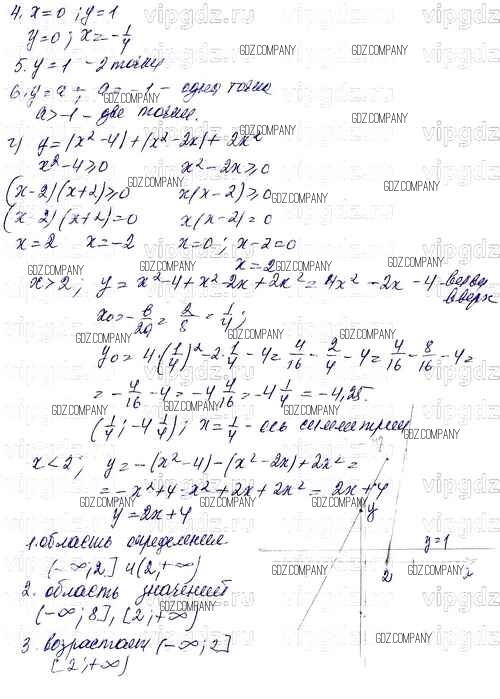 4. x=0; y=1
y=0; x=-1/4
5. y=1 - 2 точки
6. y=a; a=-1 - одна точка
a>-1 - две точки.
г) y=|x²-4|+|x²-2x|+2x²
x²-4≥0 x²-2x≥0
(x-2)(x+2)≥0 x(x-2)≥0
(x-2)(x+2)=0 x(x-2)=0
x=2 x=-2 x=0; x-2=0
x=2
x>2; y=x²-4+x²-2x+2x²=4x²-2x-4 - ветви вверх
x₀=-b/2a=2/8=1/4;
y₀=4·(1/4)²-2·1/4-4=4/16-2/4-4=4/16-8/16-4=
=-4/16-4=-4 4/16=-4 1/4=-4,25.
(1/4; -4 1/4); x=1/4 - ось симметрии
x<2; y=-(x²-4)-(x²-2x)+2x²=
=-x²+4-x²+2x+2x²=2x+4
y=2x+4
y
y=1
2
x
1. область определения
(-∞;2] и (2;+∞)
2. область значений
(-∞;8], [2;+∞)
3. возрастает (-∞;2]
[2;+∞)
vipgdz.com
GDZ.COMPANY